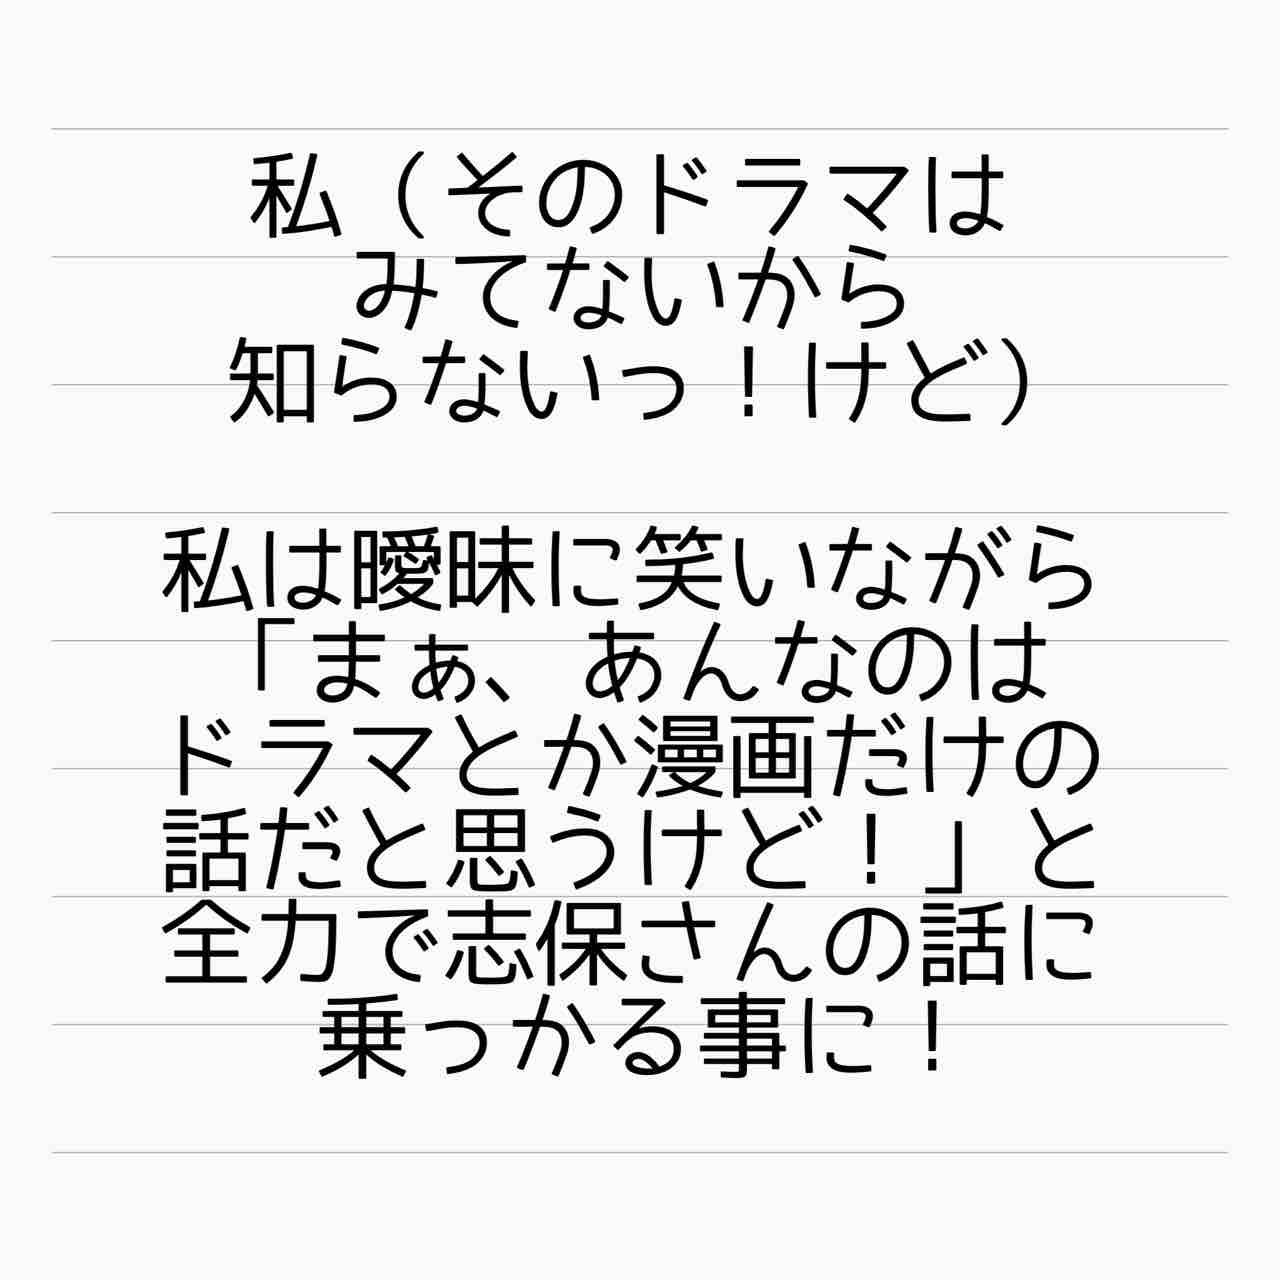 私（そのドラマは
みてないから
知らないっ！けど）
私は曖昧に笑いながら
「まぁ、あんなのは
ドラマとか漫画だけの
話だと思うけど！」と
全力で志保さんの話に
乗っかる事に！